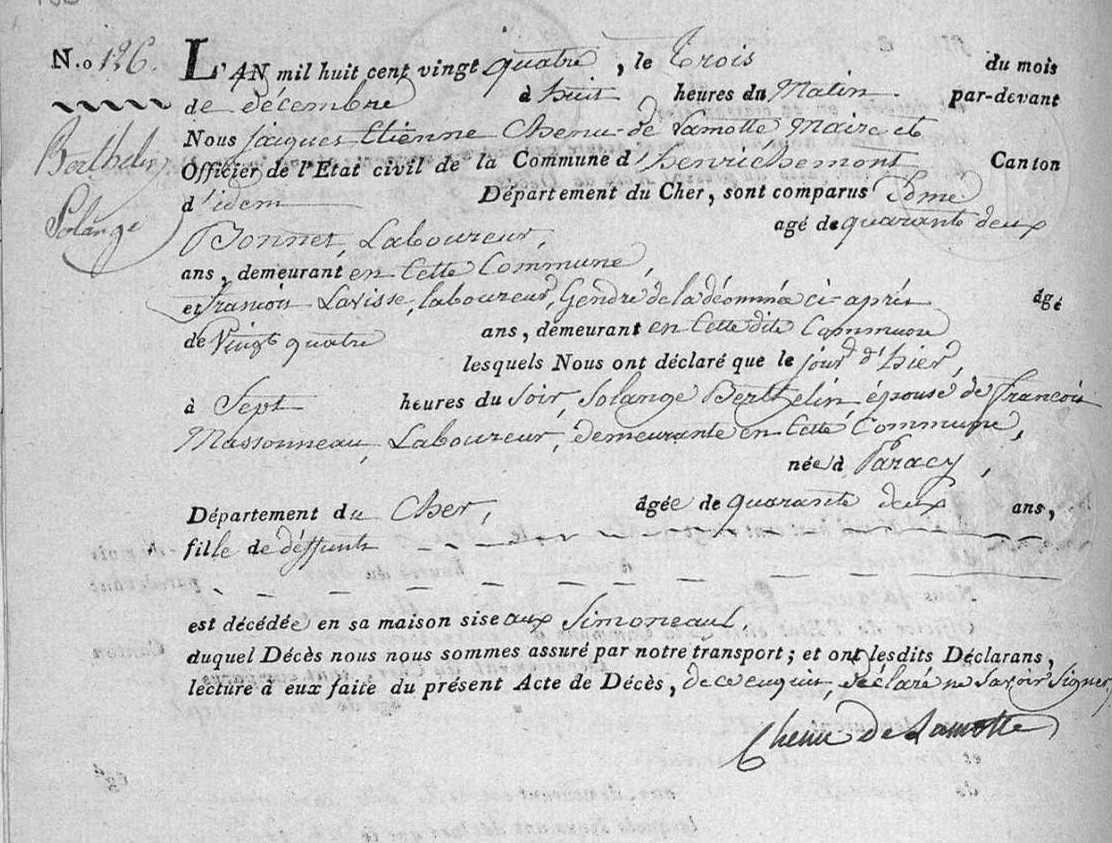 N.o 126. L'AN mil huit cent vingt quatre, le Trois du mois
de décembre à huit heures du Matin. par-devant
Berthelin
Solange
Nous jacques Etienne Chenu de Lamotte Maire et
Officier de l'Etat civil de la Commune d'henrichemont Canton
d'idem Département du Cher, sont comparus Edme
Bonnet, Laboureur, agé de quarante deux
ans, demeurant en Cette Commune,
et francois Lavisse, laboureur, Gendre de la dénommée ci-après âgé
de Vingt quatre ans, demeurant en Cette dite Commune
lesquels Nous ont déclaré que le jour d'hier,
à Sept heures du soir, Solange Berthelin, épouse de francois
Massonneau, Laboureur, demeurante en Cette Commune,
née à Paracy,
Département du Cher, âgée de quarante deux ans,
fille de déffunts
est décédée en sa maison sise aux Simoneaux,
duquel Décès nous nous sommes assuré par notre transport; et ont lesdits Déclarans,
lecture à eux faite du présent Acte de Décès, de ce enquis, déclaré ne Savoir Signer
Chenu de Lamotte